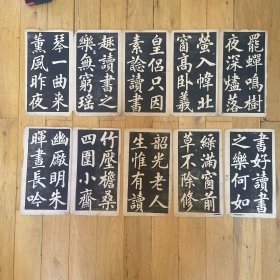 罷蟬鳴樹
夜深燼落
螢入幃北
窗高卧羲
皇侶只因
素諗讀書
趣讀書之
樂無窮瑶
琴一曲来
薰風昨夜
書好讀書
之樂何如
緑滿窗前
草不除修
韶光老人
生惟有讀
竹壓檐桑
四圍小齋
幽厰明朱
暉晝長吟